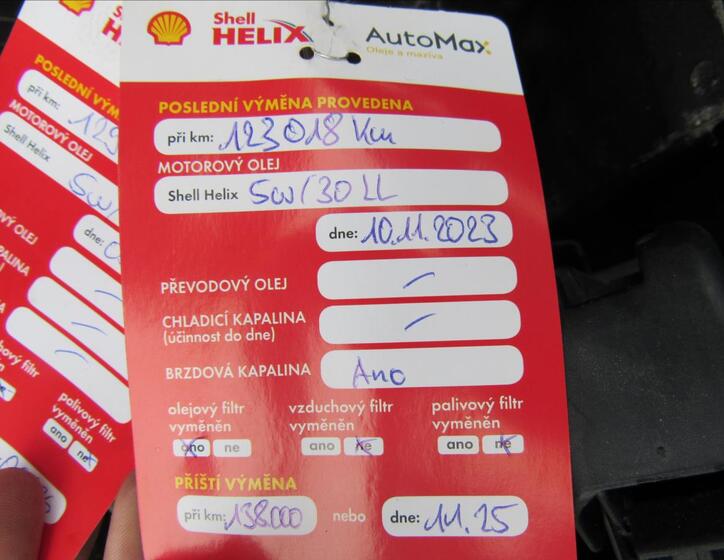 Shell
HELIX
AutoMax
Oleje a maziva
POSLEDNÍ VÝMĚNA PROVEDENA
při km: 123 018 Km
MOTOROVÝ OLEJ
Shell Helix 5w/30 LL
dne: 10.11.2023
PŘEVODOVÝ OLEJ –
CHLADICÍ KAPALINA –
(účinnost do dne)
BRZDOVÁ KAPALINA Ano
olejový filtr vzduchový filtr palivový filtr
vyměněn vyměněn vyměněn
ano ne ano ne ano ne
PŘÍŠTÍ VÝMĚNA
při km: 138000 nebo dne: 11.25
POSLEDNÍ VÝM
při km: 123
MOTOROVÝ OLEJ
Shell Helix 5w/
dne:
palivový filtr
vyměněn
ano ne